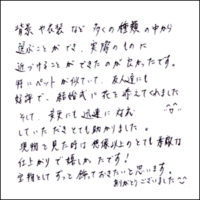 背景や衣装など多くの種類の中から
選ぶことができ、実際のものに
近づけることができたのが良かったです。
特にペットが似ていて、友人達にも
好評で、結婚式に花を添えてくれました
そして、本当にも迅速に対応
していただきとても助かりました。
実物を見た時は想像以上のとても素敵な
仕上がりで嬉しかったです!
宝物としてずっと飾っておきたいと思います。
ありがとうございました